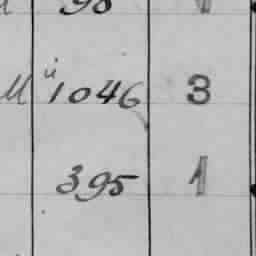 98
M 1046 3
395 1